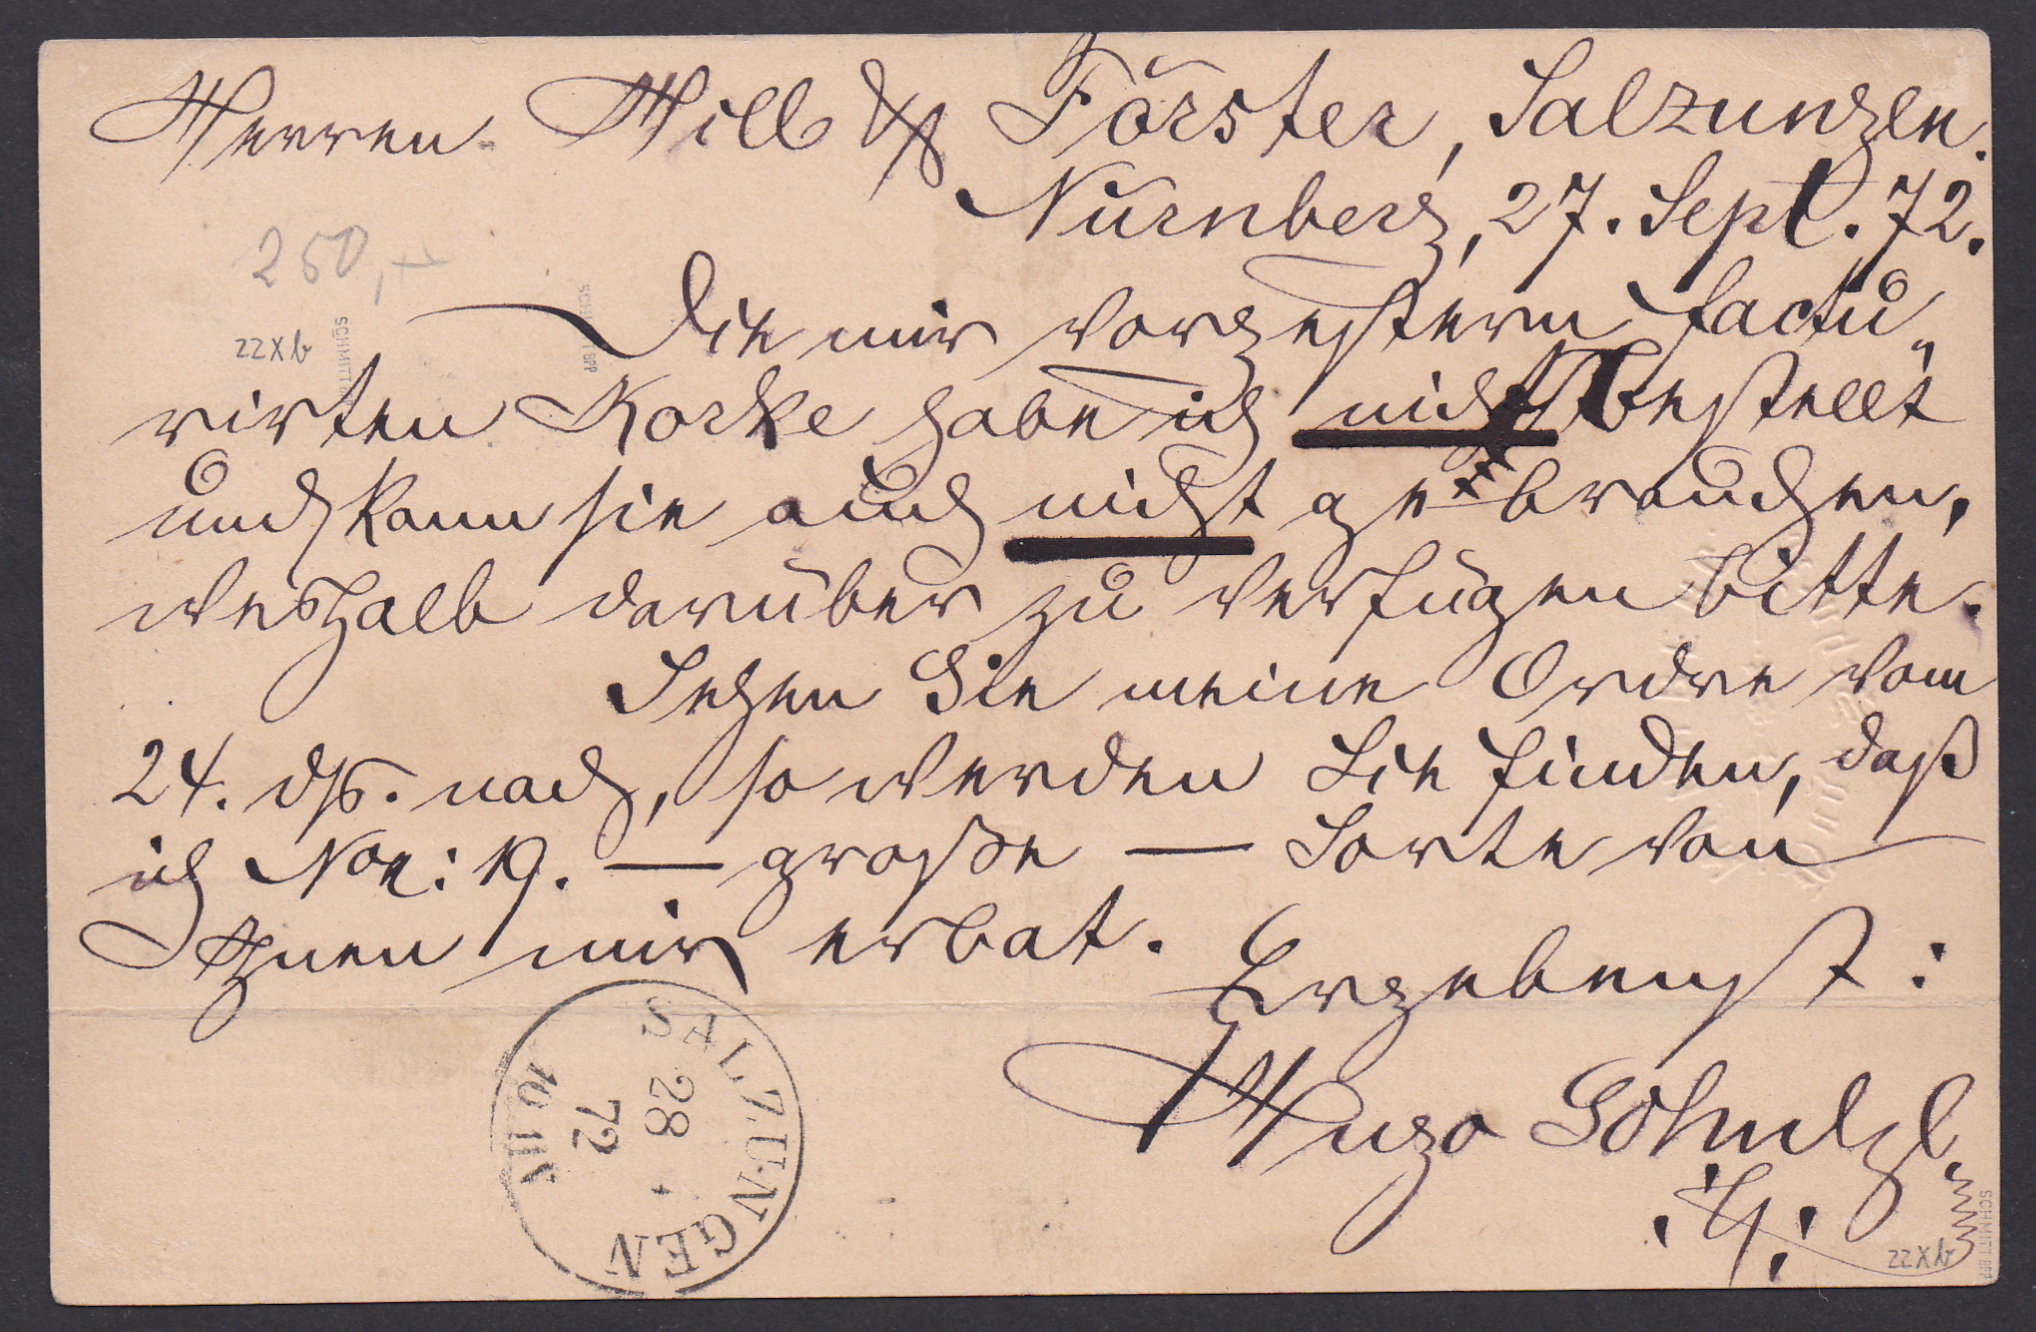 Herren Will & Förster, Salzungen.
Nürnberg, 27. Sept. 72.
250,–
22Xb
SCHMITT
Die mir vorgestern factu„
rirten Korke habe ich nicht bestellt
und kann sie auch nicht gebrauchen,
weshalb darüber zu verfügen bitte.
Sehen Sie meine Ordre vom
24. ds. nach, so werden Sie finden, daß
ich No: 19. — große — Sorte von
Ihnen mir erbat.
Ergebenst:
Hugo
SALZUNGEN
28
72
22Xb
SCHMITT BPP